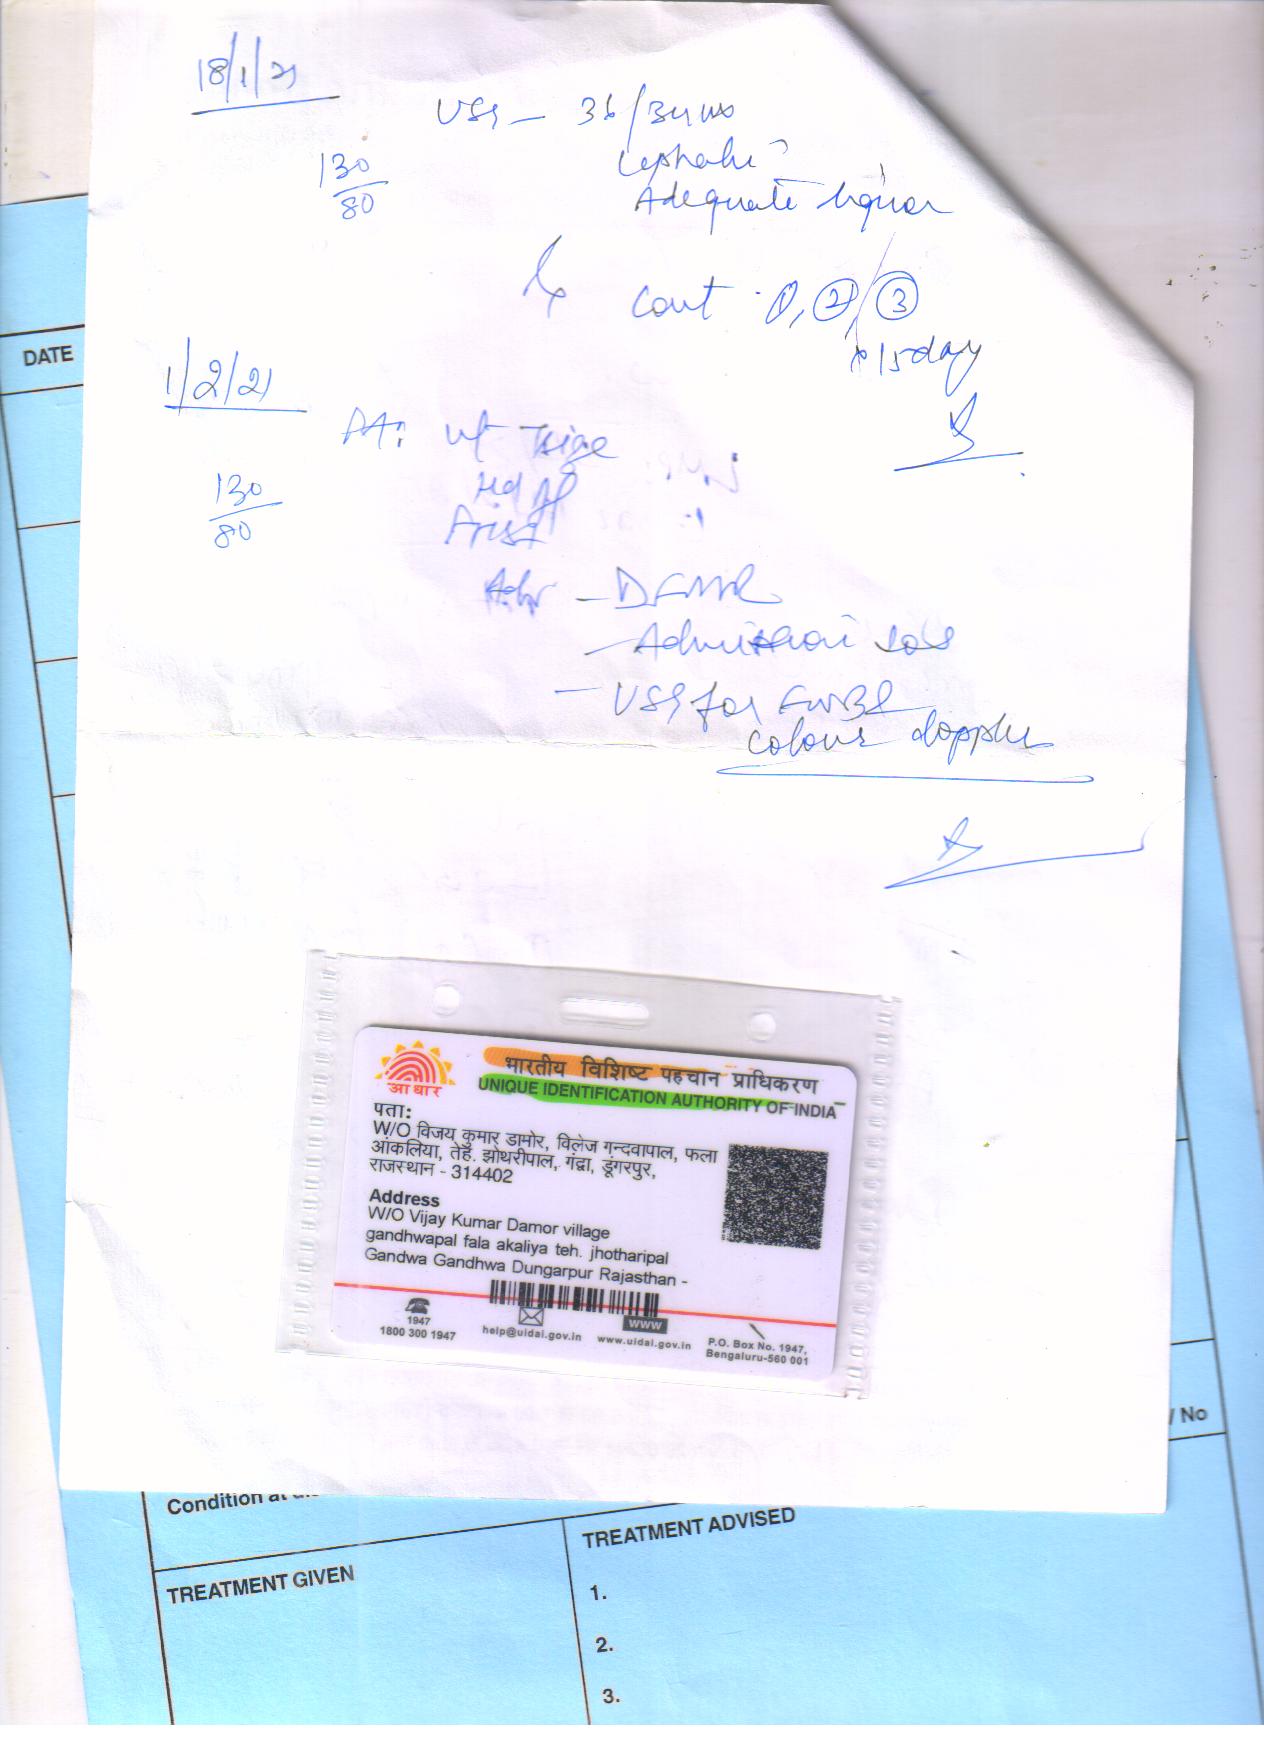 18/1/21
USG - 36/34 wks
130/80
Cephalic
Adequate liquor
Rx Cont. 1, 2, 3
x 15 day
1/2/21
PA: ut T size
130/80
Hd
Adv - DFMR
- Admission sos
- USG for FWB &
colour doppler
DATE
आधार
भारतीय विशिष्ट पहचान प्राधिकरण
UNIQUE IDENTIFICATION AUTHORITY OF INDIA
पता:
W/O विजय कुमार डामोर, विलेज गन्दवापाल, फला
आंकलिया, तेह. झोथरीपाल, गंद्वा, डूंगरपुर,
राजस्थान - 314402
Address
W/O Vijay Kumar Damor village
gandhwapal fala akaliya teh. jhotharipal
Gandwa Gandhwa Dungarpur Rajasthan -
1947
1800 300 1947
help@uidai.gov.in
www
www.uidai.gov.in
P.O. Box No. 1947,
Bengaluru-560 001
/ No
Condition at
TREATMENT GIVEN
TREATMENT ADVISED
1.
2.
3.